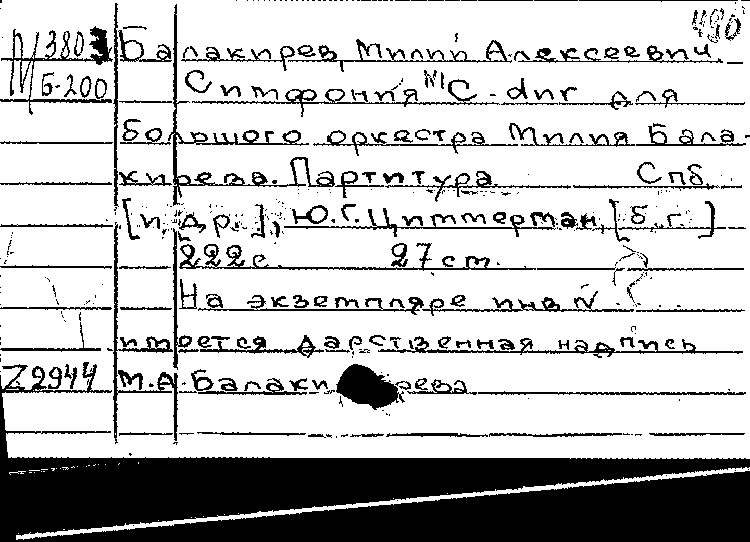 490
М 380 Балакирев, Милий Алексеевич.
Б-200 Симфония №1 C-dur для
большого оркестра Милия Бала-
кирева. Партитура Спб.
[и др.], Ю.Г. Циммерман, [б.г.]
222 с. 27 см.
На экземпляре инв №
имеется дарственная надпись
Z2944 М.А. Балакирева